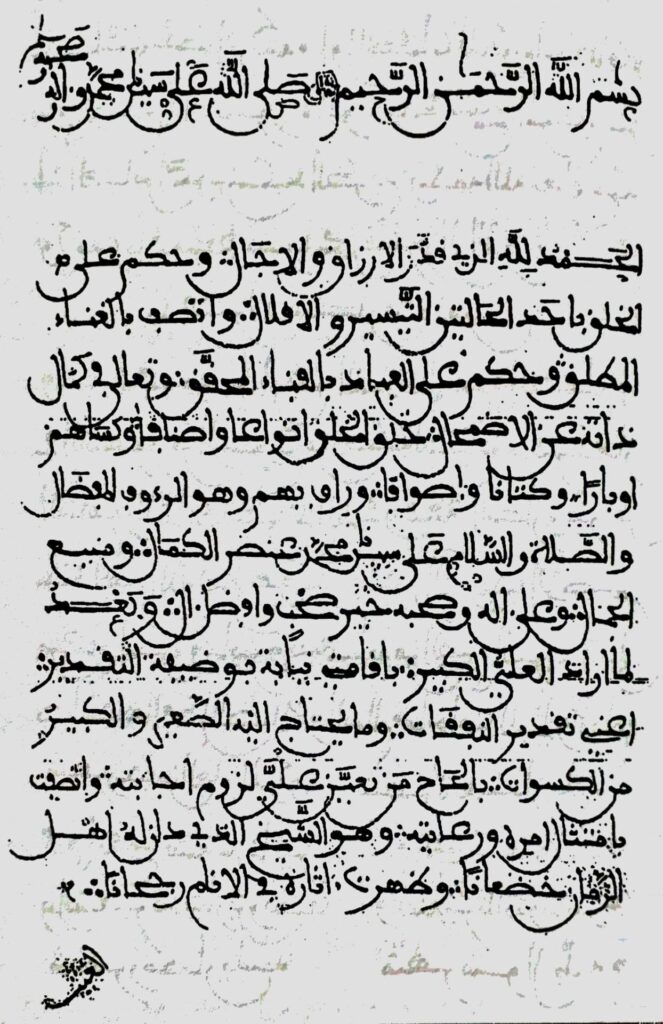 وصحبه وسلم
بسم الله الرحمن الرحيم صلى الله على سيدنا محمد وآله
الحمد لله الذي قدر الارزاق والاجال وحكم على
الخلق باحد الحالتين التيسير والاقلال واتصف بالغناء
المطلق وحكم على العباد بالفناء المحقق وتعالى في كمال
ذاته عن الاضمحلال خلق الخلق انواعا واصنافا وكساهم
اوبارا وكتانا واصوافا وراف بهم وهو الرءوف المفضال
والصلاة والسلام على سيدنا محمد عنصر الكمال ومنبع
الجمال وعلى اله وصحبه خير صحب وافضل ال وبعد
لما اراد العلي الكبير باقامتي نيابة بوضيفة التقدير
اعني تقدير النفقات وما يحتاج اليه الصغير والكبير
من الكسوات بالحاح من تعين علي لزوم اجابته واتصفت
بامتثال امره ورعايته وهو الشيخ الذي دان له اهل
الزمان خضعانا وظهرت اثاره في الاقليم رجحانا